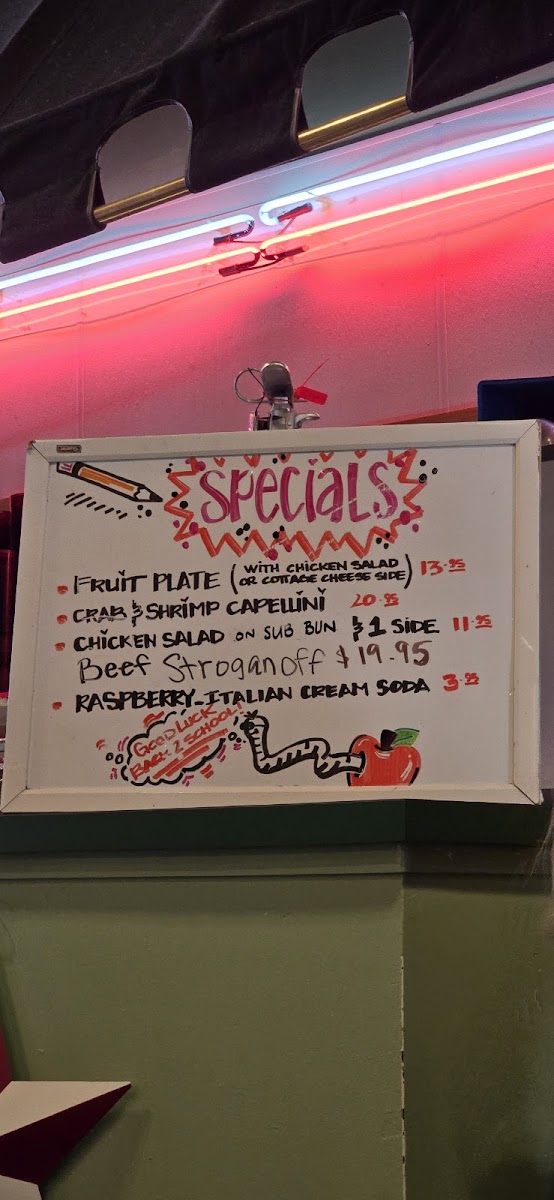 SPECIALS
• FRUIT PLATE (WITH CHICKEN SALAD OR COTTAGE CHEESE SIDE) 13.95
• CRAB & SHRIMP CAPELLINI 20.95
• CHICKEN SALAD ON SUB BUN & 1 SIDE 11.95
Beef Stroganoff $19.95
• RASPBERRY ITALIAN CREAM SODA 3.95
GOOD LUCK
BACK 2 SCHOOL!